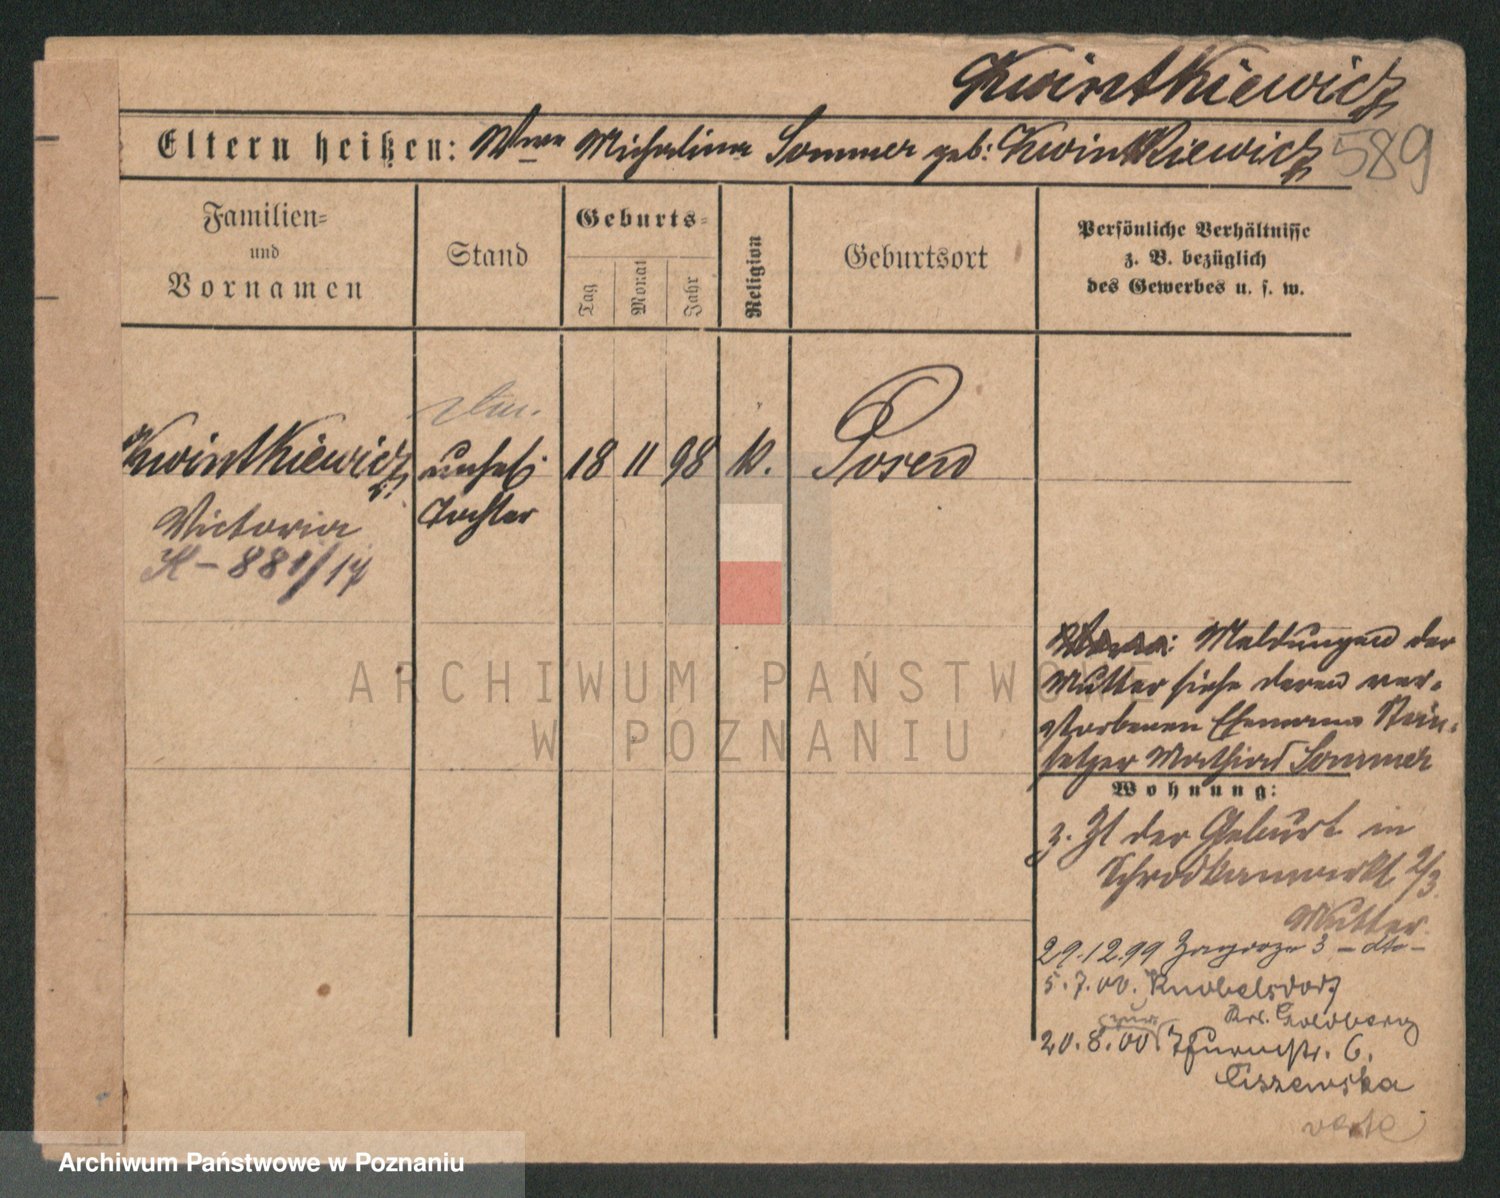 Kwintkiewicz
589
Eltern heißen: Wwe Michalina Sommer geb: Kwintkiewicz
Familien=
und
Vornamen
Stand
Geburts=
Tag
Monat
Jahr
Religion
Geburtsort
Persönliche Verhältnisse
z. B. bezüglich
des Gewerbes u. s. w.
Kwintkiewicz
Victoria
K-881/17
unehel.
Tochter
18 11 98 k. Posen
Meldungen der
Mutter siehe deren ver-
storbenen Ehemann Stein-
setzer Mathias Sommer
Wohnung:
z. Zt der Geburt in
Schrodkamarkt 2/3
Mutter.
29.12.99 Zagorze 3 - dto -
5.7.00. Knobelsdorf
Krs. Goldberg
20.8.00 Thurmstr. 6.
Ciszewska
verte
ARCHIWUM PAŃSTWOWE
W POZNANIU
Archiwum Państwowe w Poznaniu